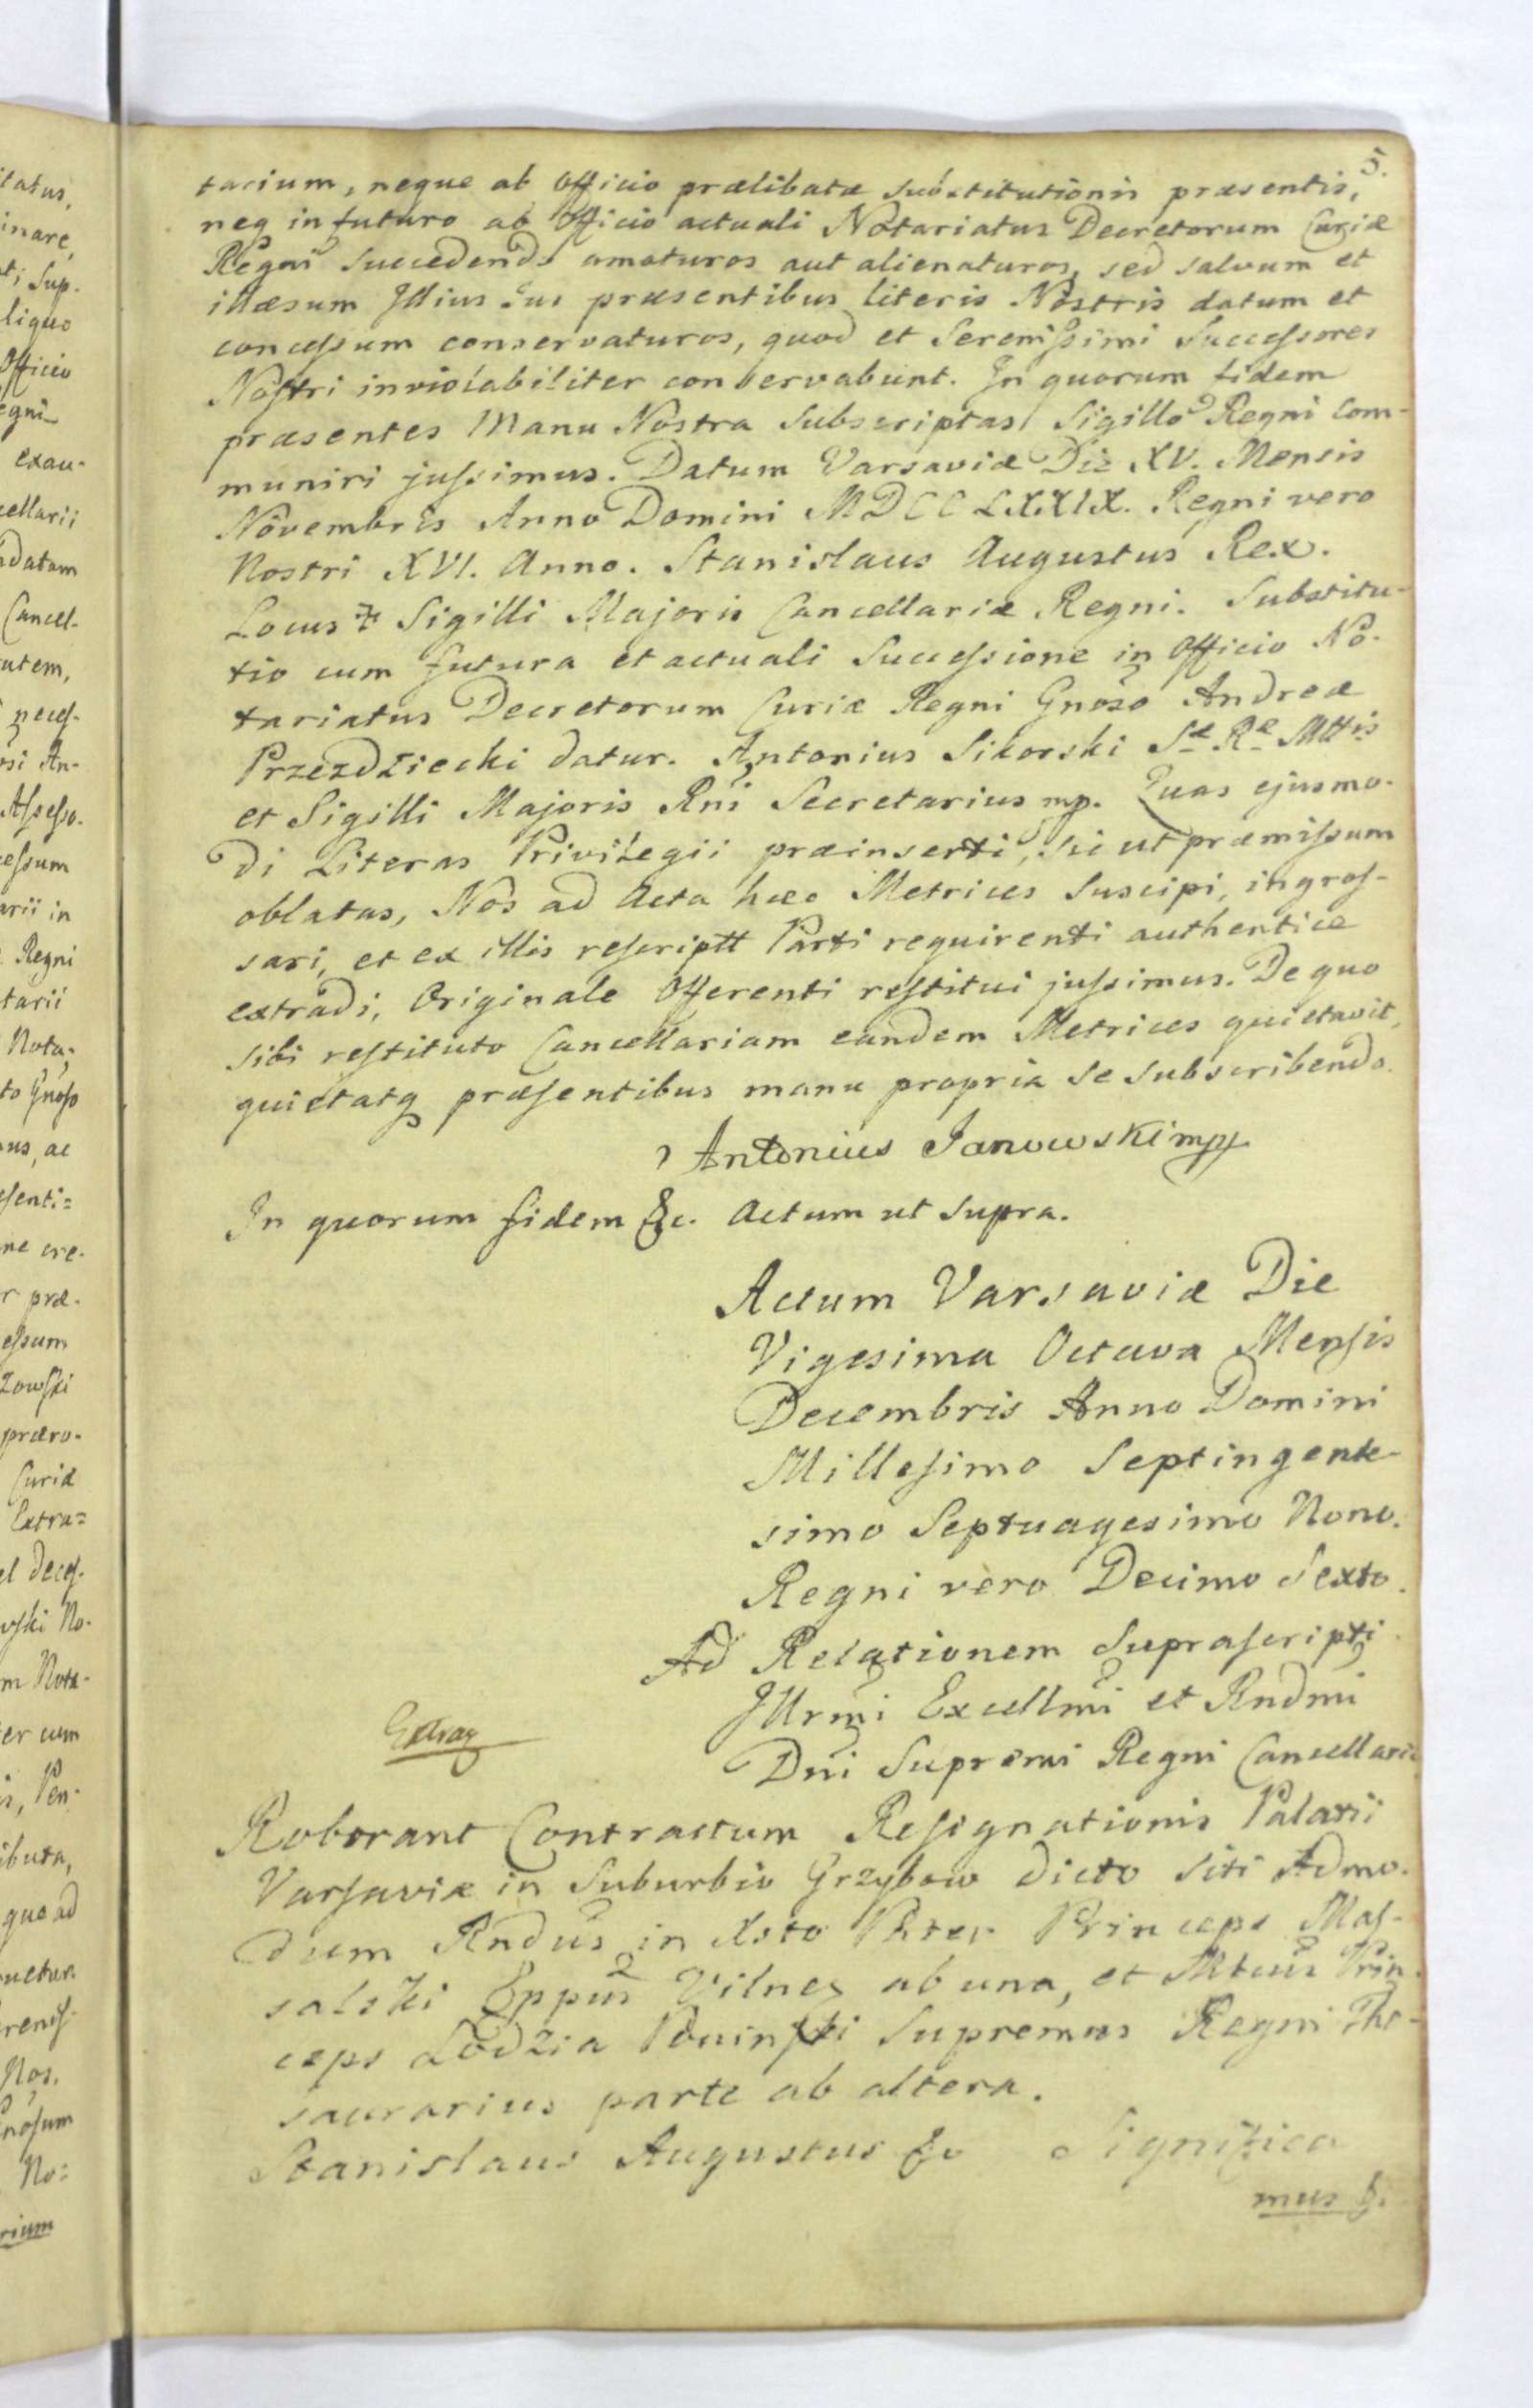 5.
tarium, neque ab Officio prælibatæ substitutionis præsentis,
neq in futuro ab Officio actuali Notariatus Decretorum Curiæ
Regni succedendo amoturos aut alienaturos, sed salvum et
illæsum Illius Jus præsentibus literis Nostris datum et
concessum conservaturos, quod et Serenissimi Successores
Nostri inviolabiliter conservabunt. In quorum fidem
præsentes Manu Nostra Subscriptas Sigillo Regni com-
muniri jussimus. Datum Varsaviæ Die XV. Mensis
Novembris Anno Domini MDCCLXXIX. Regni vero
Nostri XVI. Anno. Stanislaus Augustus Rex.
Locus Sigilli Majoris Cancellariæ Regni. Substitu-
tio cum futura et actuali Successione in Officio No-
tariatus Decretorum Curiæ Regni Gnoso Andreæ
Przezdziecki datur. Antonius Sikorski Sæ Ræ Mttis
et Sigilli Majoris Rni Secretarius mp. Quas ejusmo-
di Literas Privilegii præinserti, sic ut præmissum
oblatas, Nos ad Acta hæc Metrices suscipi, ingros-
sari, et ex illis rescriptt Parti requirenti authentice
extradi, Originale Offerenti restitui jussimus. De quo
sibi restituto Cancellariam eandem Metrices quietavit,
quietatq præsentibus manu propria se subscribendo.
Antonius Janowski mpp
In quorum fidem &c. Actum ut supra.
Actum Varsaviæ Die
Vigesima Octava Mensis
Decembris Anno Domini
Millesimo Septingente-
simo Septuagesimo Nono.
Regni vero Decimo Sexto.
Ad Relationem Suprascripti
Illrmi Excellmi et Rndmi
Dni Supremi Regni Cancellarii
Roborant Contractum Resignationis Palatii
Varsaviæ in Suburbio Grzybow dicto siti Admo-
dum Rndus in Xsto Pater Princeps Mas-
salski Eppus Vilnes ab una, et Mtcus Prin-
ceps Lodzia Poninski Supremus Regni The-
saurarius parte ab altera.
Stanislaus Augustus &c Significa
mus &.